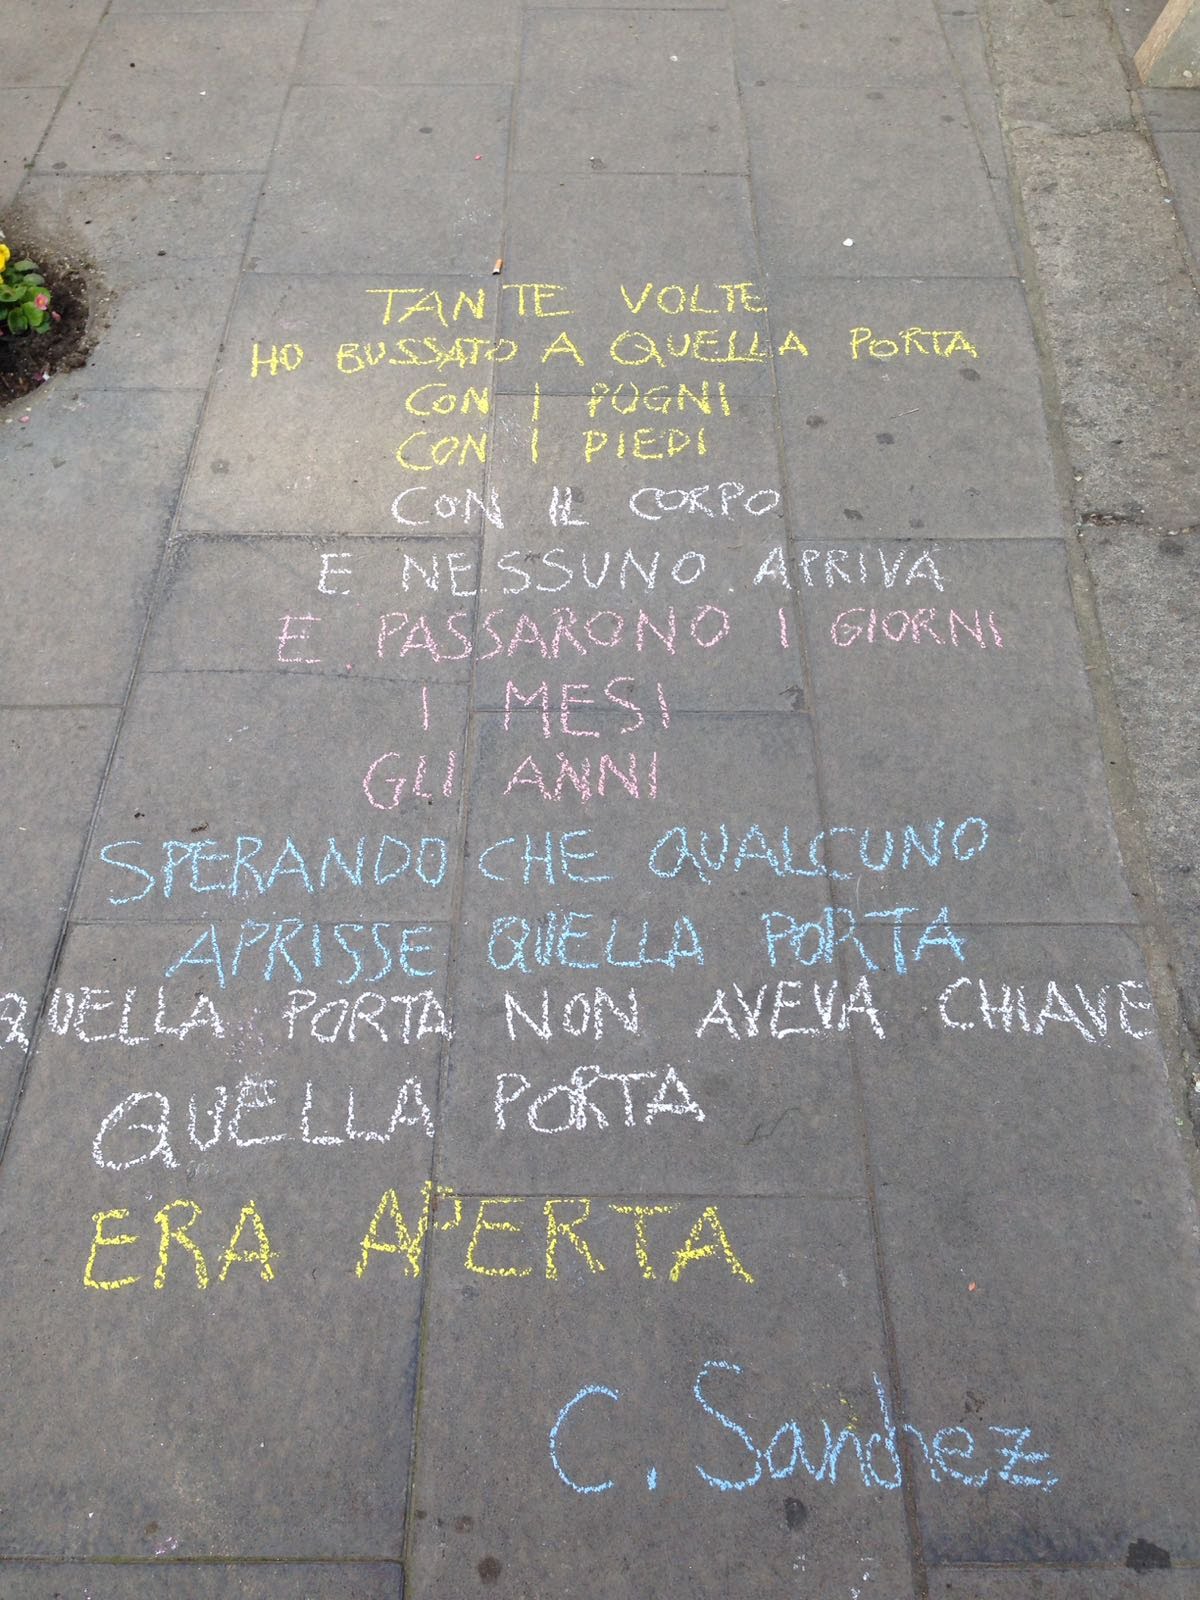 TANTE VOLTE
HO BUSSATO A QUELLA PORTA
CON I PUGNI
CON I PIEDI
CON IL CORPO
E NESSUNO APRIVA
E PASSARONO I GIORNI
I MESI
GLI ANNI
SPERANDO CHE QUALCUNO
APRISSE QUELLA PORTA
QUELLA PORTA NON AVEVA CHIAVE
QUELLA PORTA
ERA APERTA
C. Sanchez